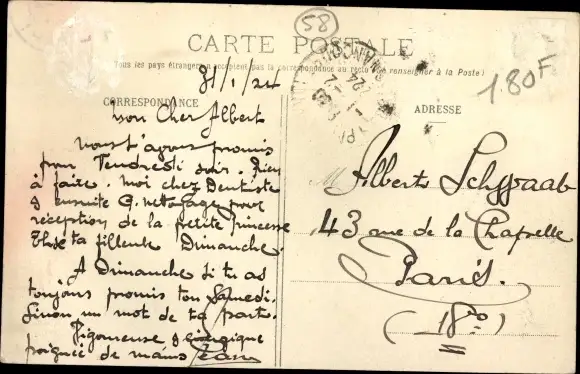 58
CARTE POSTALE
Tous les pays étrangers n'acceptent pas la correspondance au recto (Se renseigner à la Poste)
1.80F
31/1/24
CORRESPONDANCE
ADRESSE
Mon Cher Albert
nous t'avons promis
pour Vendredi soir. Rien
à faire. Moi chez Dentiste
& ensuite G. nettoyage pour
réception de la petite princesse
ta filleule Dimanche.
A Dimanche si tu as
toujours promis ton Samedi.
Sinon un mot de ta part.
Vigoureuse & énergique
poignée de mains Jean
M Albert Schwaab
43 rue de la Chapelle
Paris.
(18e)